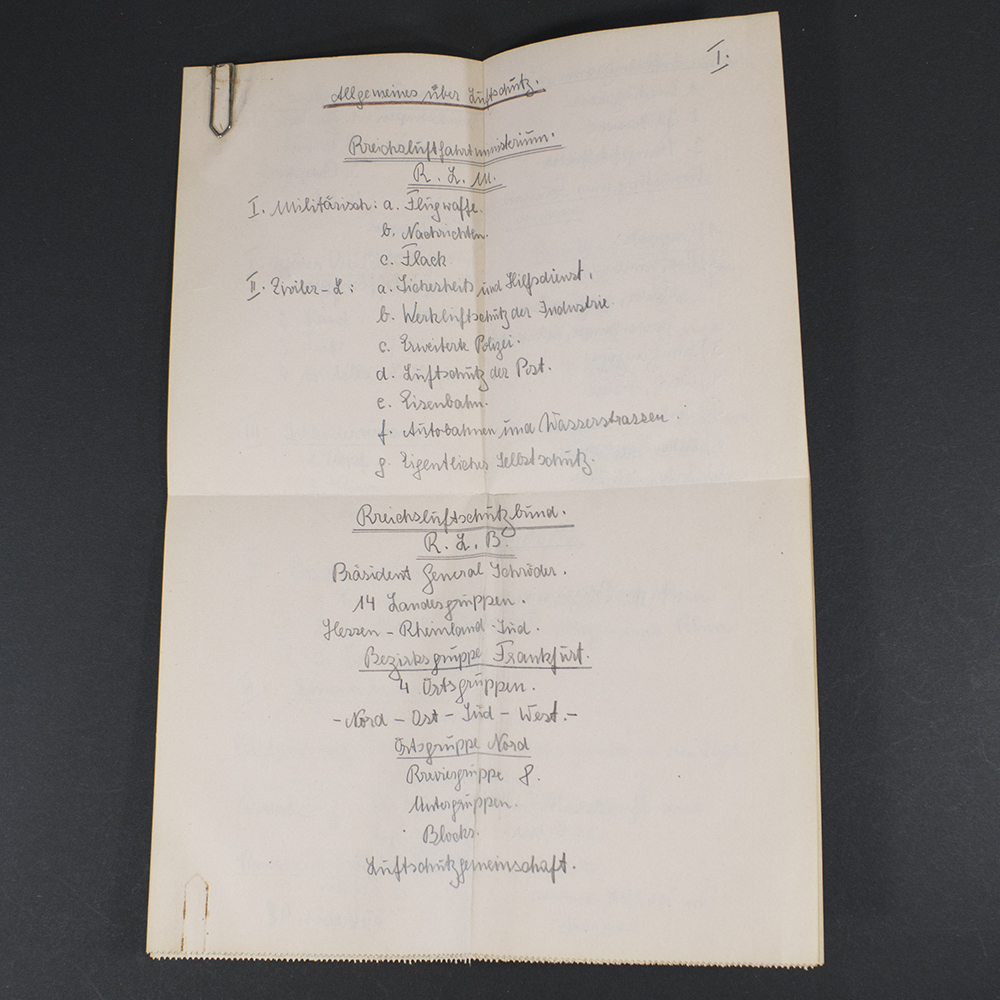 I.
Allgemeines über Luftschutz.
Reichsluftfahrtministerium.
R. L. M.
I. Militärisch: a. Flugwaffe.
b. Nachrichten.
c. Flack
II. Ziviler-L: a. Sicherheits und Hilfsdienst.
b. Werkluftschutz der Industrie.
c. Erweiterte Polizei.
d. Luftschutz der Post.
e. Eisenbahn.
f. Autobahnen und Wasserstrassen.
g. Eigentliches Selbstschutz.
Reichsluftschutzbund.
R. L. B.
Präsident General Schröder.
14 Landesgruppen.
Hessen - Rheinland-Süd.
Bezirksgruppe Frankfurt.
4 Ortsgruppen.
- Nord - Ost - Süd - West. -
Ortsgruppe Nord
Reviergruppe 8.
Untergruppen.
Blocks.
Luftschutzgemeinschaft.